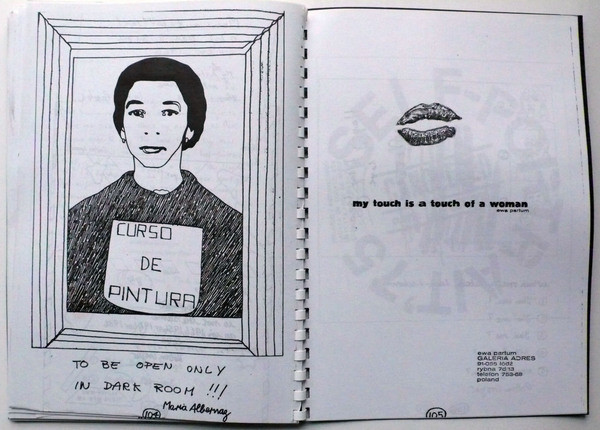 CURSO
DE
PINTURA
TO BE OPEN ONLY
IN DARK ROOM !!!
Maria Albernaz
104
my touch is a touch of a woman
ewa partum
ewa partum
GALERIA ADRES
rybna 7d/13
poland
105